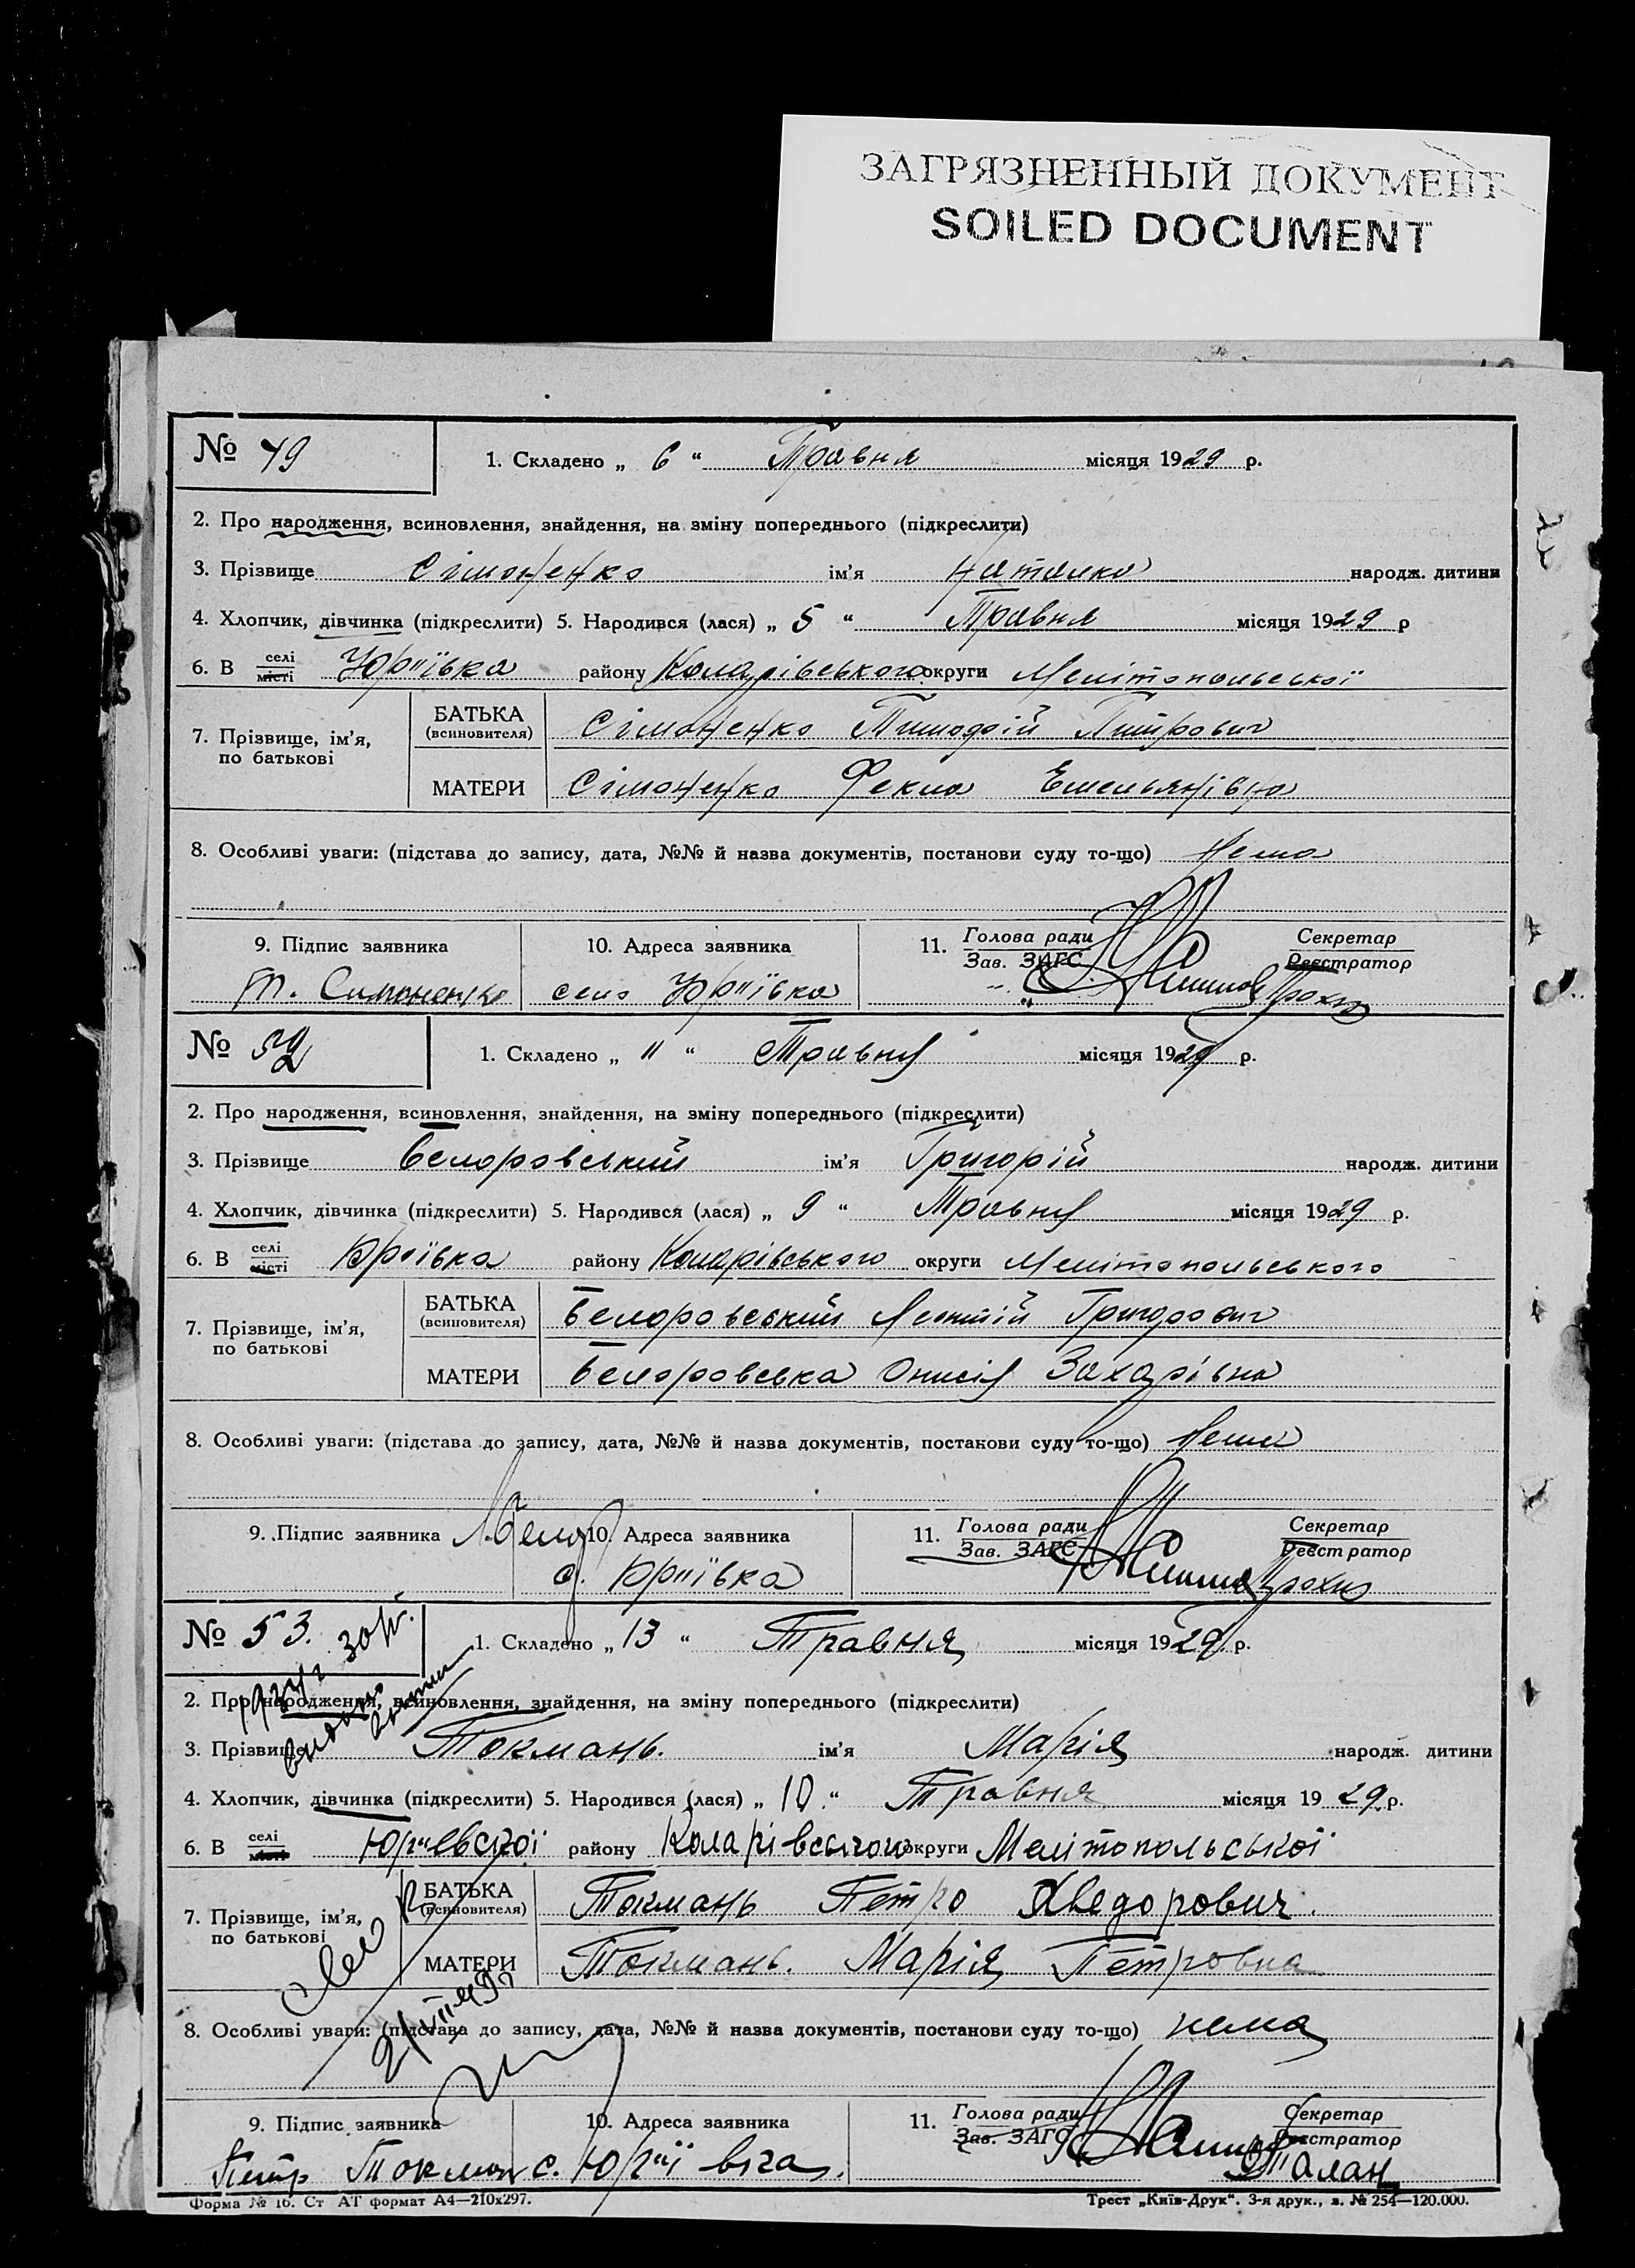 ЗАГРЯЗНЕННЫЙ ДОКУМЕНТ
SOILED DOCUMENT
№ 49 1. Складено „ 6 “ Травня місяця 1929 р.
2. Про народження, всиновлення, знайдення, на зміну попереднього (підкреслити)
3. Прізвище Сімоненко ім’я Наталка народж. дитини
4. Хлопчик, дівчинка (підкреслити) 5. Народився (лася) „ 5 “ Травня місяця 1929 р
6. В селі місті Юріївка району Коларівського округи Мелітопольської
7. Прізвище, ім’я, по батькові
БАТЬКА (всиновителя) Сімоненко
МАТЕРИ Сімоненко Фекла Емельянівна
8. Особливі уваги: (підстава до запису, дата, №№ й назва документів, постанови суду то-що) Нема
9. Підпис заявника 10. Адреса заявника 11. Голова ради Зав. ЗАГС Секретар Реєстратор
Т. Симоненко село Юріївка
№ 52 1. Складено „ 11 “ Травня місяця 1929 р.
2. Про народження, всиновлення, знайдення, на зміну попереднього (підкреслити)
3. Прізвище ім’я Григорій народж. дитини
4. Хлопчик, дівчинка (підкреслити) 5. Народився (лася) „ 9 “ Травня місяця 1929 р.
6. В селі місті Юріївка району Коларівського округи Мелітопольського
7. Прізвище, ім’я, по батькові
БАТЬКА (всиновителя) Григорович
МАТЕРИ Онисія Захарівна
8. Особливі уваги: (підстава до запису, дата, №№ й назва документів, постанови суду то-що) Нема
9. Підпис заявника 10. Адреса заявника 11. Голова ради Зав. ЗАГС Секретар Реєстратор
с. Юріївка
№ 53. 1. Складено „ 13 “ Травня місяця 1929 р.
2. Про народження, всиновлення, знайдення, на зміну попереднього (підкреслити)
3. Прізвище Токмань. ім’я Марія народж. дитини
4. Хлопчик, дівчинка (підкреслити) 5. Народився (лася) „ 10 “ Травня місяця 19 29 р.
6. В селі місті району Коларівського округи Мелітопольської
7. Прізвище, ім’я, по батькові
БАТЬКА (всиновителя) Токмань Петро Хведорович.
МАТЕРИ Токмань. Марія Петровна
8. Особливі уваги: (підстава до запису, дата, №№ й назва документів, постанови суду то-що) нема
9. Підпис заявника 10. Адреса заявника 11. Голова ради Зав. ЗАГС Секретар Реєстратор
с. Юріївка.
Форма № 16. Ст АТ формат А4—210х297. Трест „Київ-Друк“. 3-я друк., з. № 254—120.000.